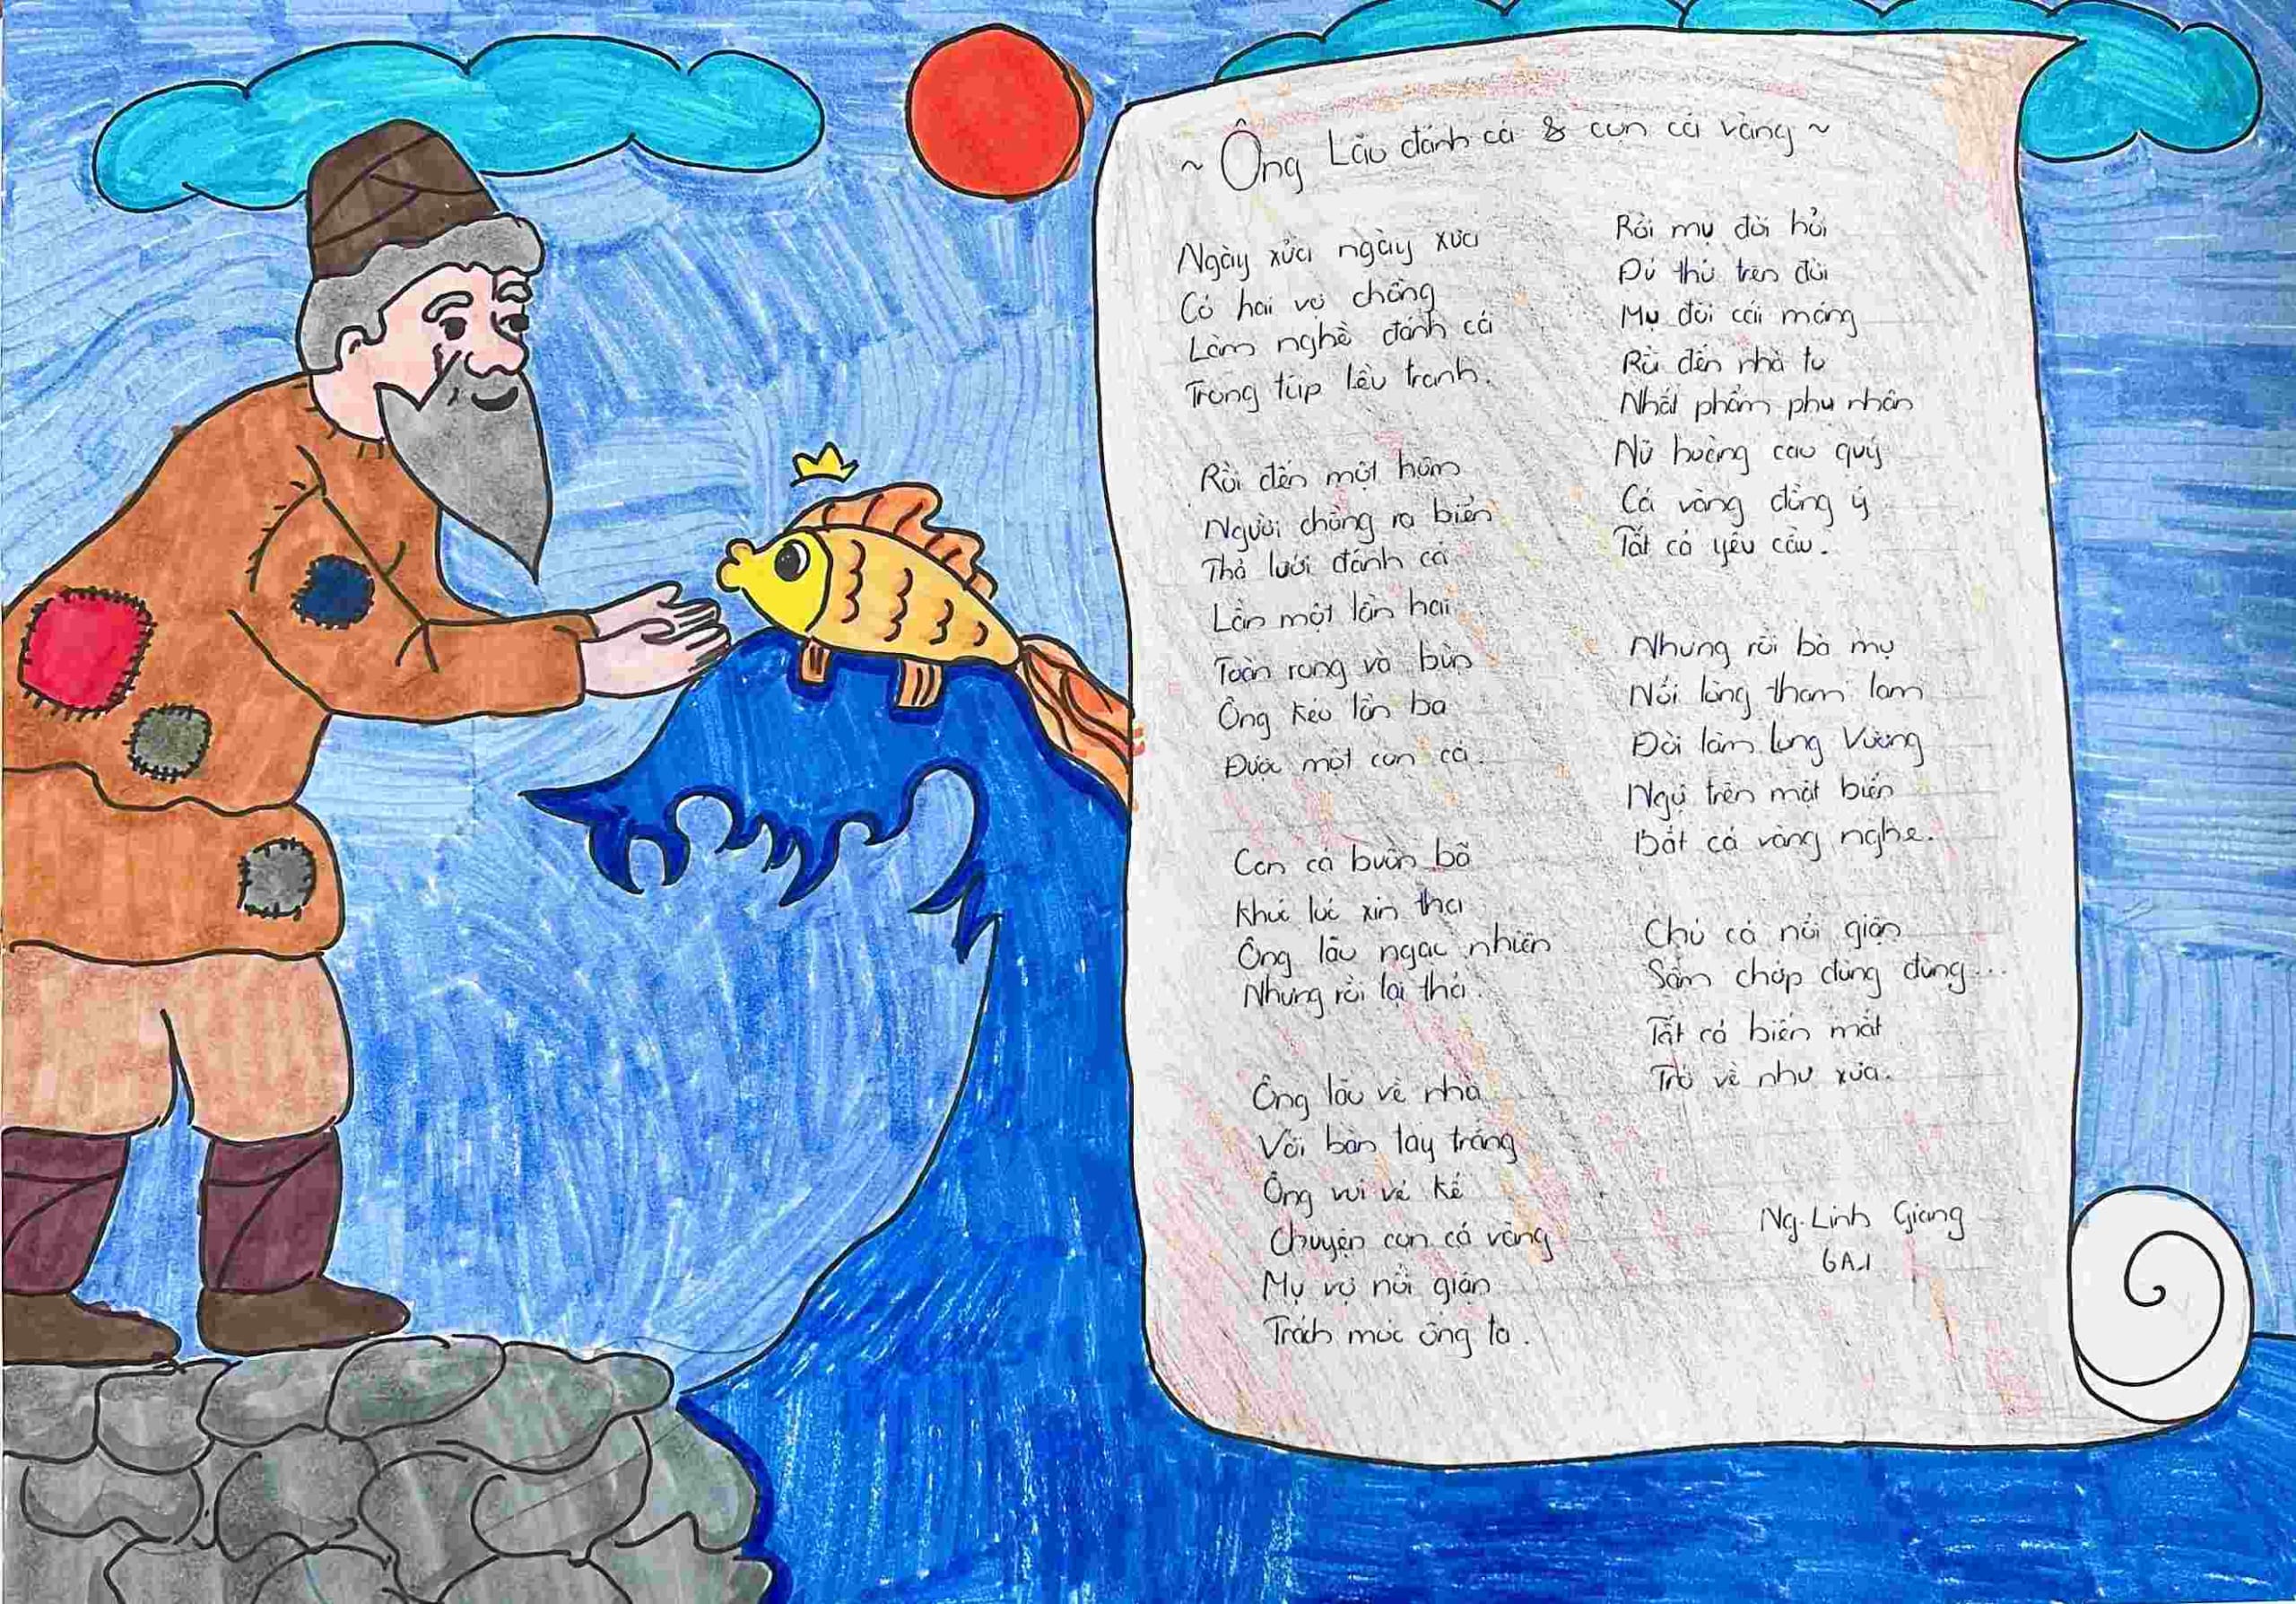 ~ Ông Lão đánh cá & con cá vàng ~
Ngày xửa ngày xưa
Có hai vợ chồng
Làm nghề đánh cá
Trong túp lều tranh.
Rồi đến một hôm
Người chồng ra biển
Thả lưới đánh cá
Lần một lần hai
Toàn rong và bùn
Ông kéo lần ba
Được một con cá.
Con cá buồn bã
Khúc lúc xin tha
Ông lão ngạc nhiên
Nhưng rồi lại thả.
Ông lão về nhà
Với bàn tay trắng
Ông vui vẻ kể
Chuyện con cá vàng
Mụ vợ nổi giận
Trách móc ông ta.
Rồi mụ đòi hỏi
Đủ thứ trên đời
Mụ đòi cái máng
Rồi đến nhà to
Nhất phẩm phu nhân
Nữ hoàng cao quý
Cá vàng đồng ý
Tất cả yêu cầu.
Nhưng rồi bà mụ
Nổi lòng tham lam
Đòi làm long Vương
Ngự trên mặt biển
Bắt cá vàng nghe.
Chú cá nổi giận
Sấm chớp đùng đùng...
Tất cả biến mất
Trở về như xưa.
Ng. Linh Giang
6A1